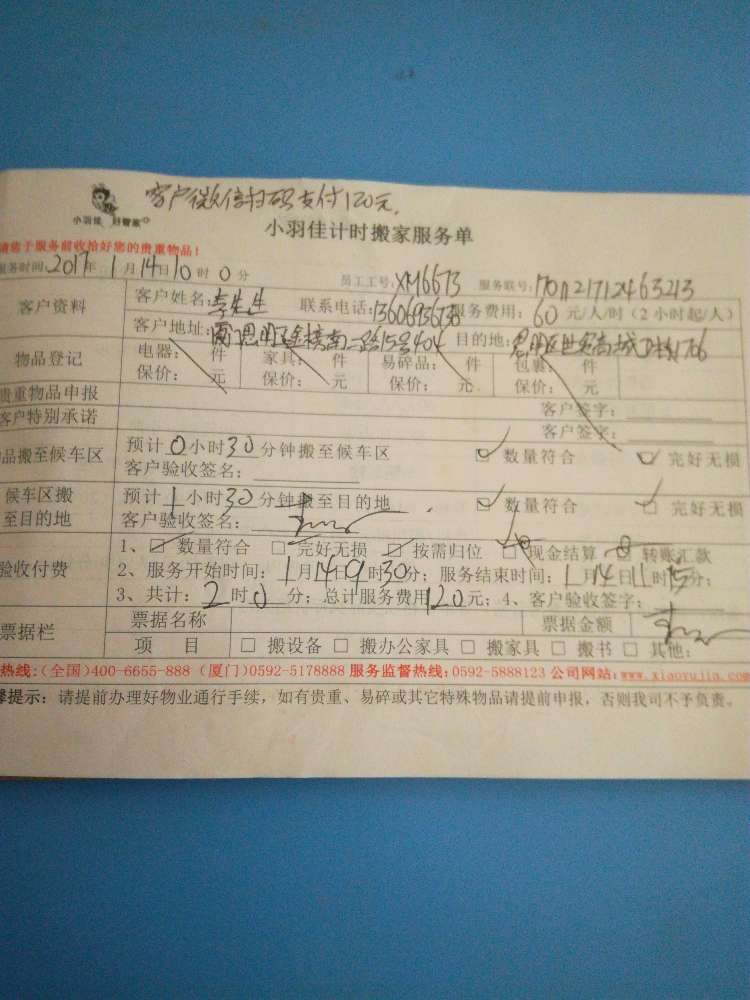 客户微信扫码支付120元.
小羽佳 好管家
小羽佳计时搬家服务单
请您于服务前收拾好您的贵重物品!
服务时间:2017年1月14日10时0分 员工工号:XM6673 服务联号:
客户资料 客户姓名:李先生 联系电话: 服务费用:60元/人/时(2小时起/人)
客户地址: 思明区 南二路15号404 目的地: 思明区
物品登记 电器: 件 家具: 件 易碎品: 件 包裹: 件
保价: 元 保价: 元 保价: 元 保价: 元
贵重物品申报 客户签字:
客户特别承诺 客户签字:
品搬至候车区 预计0小时30分钟搬至候车区 ☑ 数量符合 ☑ 完好无损
客户验收签名:
候车区搬至目的地 预计1小时30分钟搬至目的地 ☑ 数量符合 ☑ 完好无损
客户验收签名:
验收付费 1、☑ 数量符合 ☑ 完好无损 ☑ 按需归位 □ 现金结算 转账汇款
2、服务开始时间:1月14日9时30分; 服务结束时间:1月14日11时15分;
3、共计:2时0分; 总计服务费用120元; 4、客户验收签字:
票据栏 票据名称 票据金额
项 目 □ 搬设备 □ 搬办公家具 □ 搬家具 □ 搬书 □ 其他:
热线:(全国)400-6655-888 (厦门)0592-5178888 服务监督热线:0592-5888123 公司网站:www.xiaoyujia.com
馨提示: 请提前办理好物业通行手续,如有贵重、易碎或其它特殊物品请提前申报,否则我司不予负责。